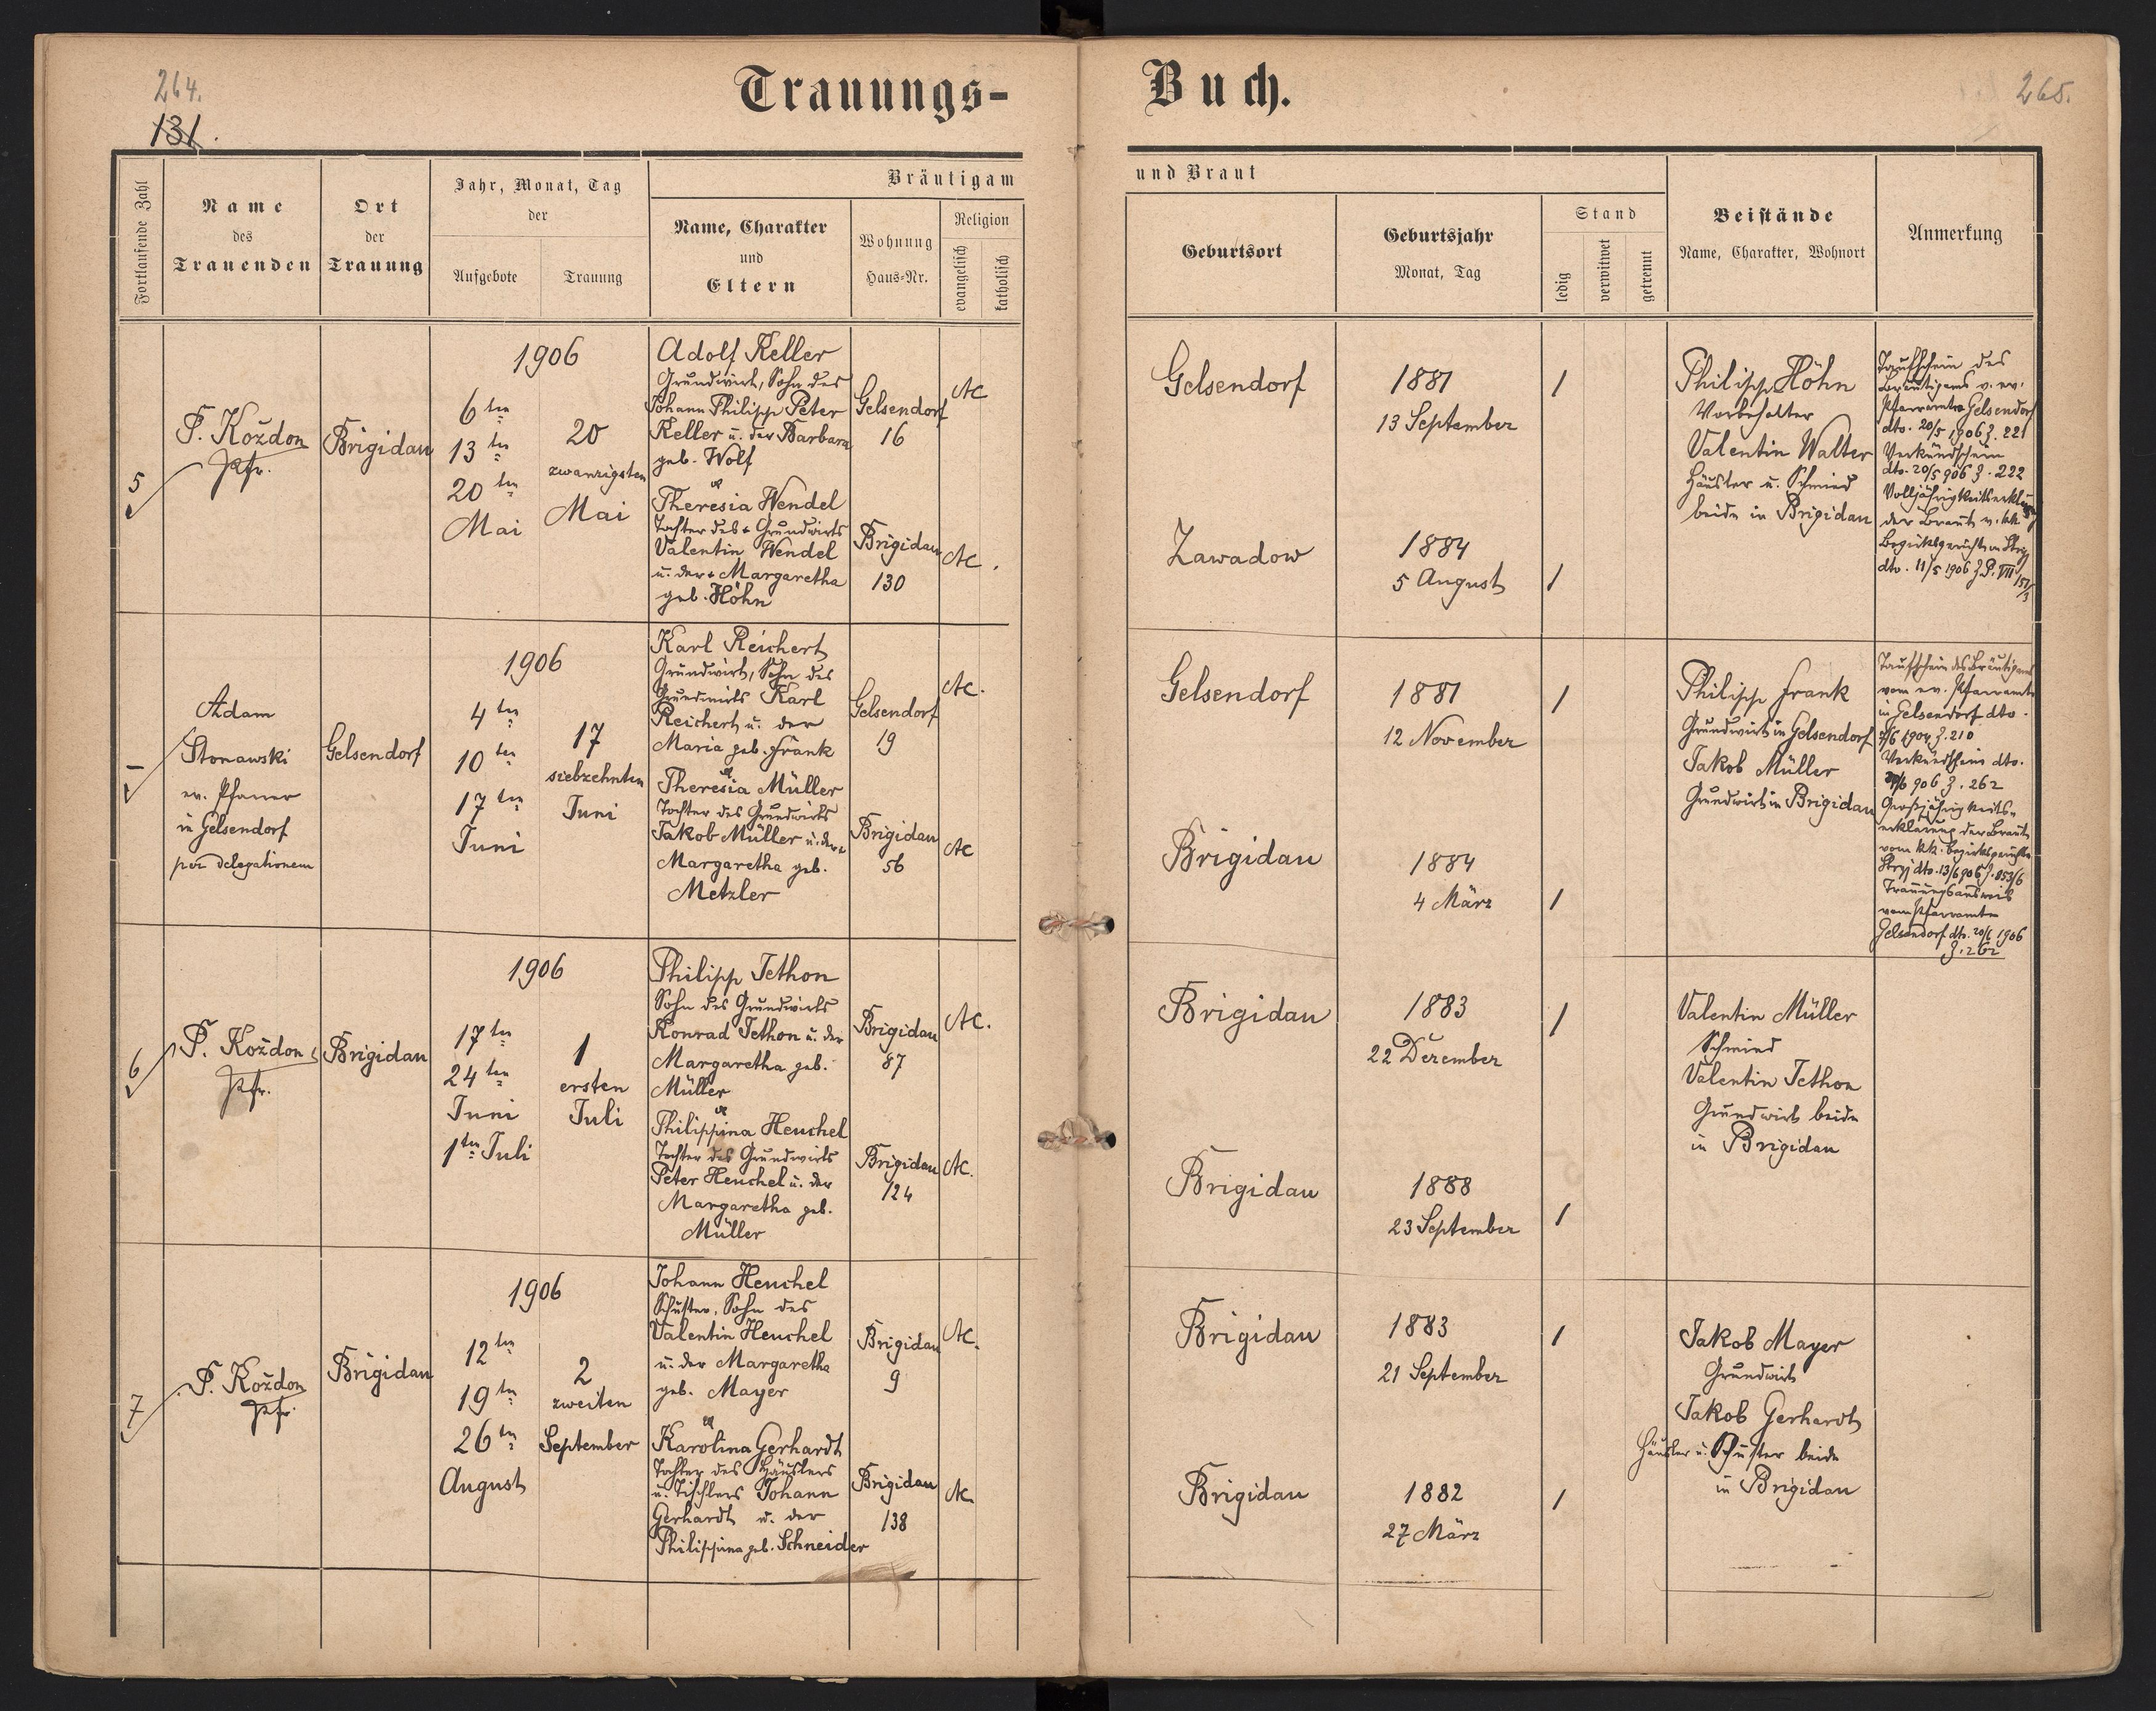 264.
131.
Trauungs-
Buch.
265.
Fortlaufende Zahl
Name
des
Trauenden
Ort
der
Trauung
Jahr, Monat, Tag
der
Aufgebote
Trauung
Bräutigam
Name, Charakter
und
Eltern
Wohnung
Haus-Nr.
Religion
evangelisch
katholisch
und Braut
Geburtsort
Geburtsjahr
Monat, Tag
Stand
ledig
verwitwet
getrennt
Beistände
Name, Charakter, Wohnort
Anmerkung
5
P. Koždon
Pfr.
Brigidau
1906
6ten
13ten
20ten
Mai
20
zwanzigsten
Mai
Adolf Keller
Grundwirt, Sohn des
Johann Philipp Peter
Keller u. der Barbara
geb. Wolf
Gelsendorf
16
AC
Theresia Wendel
Tochter des + Grundwirts
Valentin Wendel
u. der + Margaretha
geb. Höhn
Brigidau
130
AC.
Gelsendorf
1881
13 September
1
Zawadow
1884
5 August
1
Philipp Höhn
Vorbehalter
Valentin Walter
Häusler u. Schmied
beide in Brigidau
Taufschein des
Bräutigams v. ev.
Pfarramte Gelsendorf
dto. 20/5 1906 Z. 221
Verkündschein
dto. 20/5 906 Z. 222
Volljährigkeitserklärung
der Braut v. kk
Bezirksgerichte in Stryj
dto. 11/5 1906 Z. P. VII 151/3
Adam
Stonawski
ev. Pfarrer
in Gelsendorf
per delegationem
Gelsendorf
1906
4ten
10ten
17ten
Juni
17
siebzehnten
Juni
Karl Reichert
Grundwirt, Sohn des
Grundwirts Karl
Reichert u. der
Maria geb. Frank
Gelsendorf
19
AC.
Theresia Müller
Tochter des Grundwirts
Jakob Müller u. der
Margaretha geb.
Metzler
Brigidau
56
AC
Gelsendorf
1881
12 November
1
Brigidau
1884
4 März
1
Philipp Frank
Grundwirt in Gelsendorf
Jakob Müller
Grundwirt in Brigidau
Taufschein des Bräutigams
vom ev. Pfarramte
in Gelsendorf dto.
Z. 210
Verkündschein dto.
906 Z. 262
Großjährigkeits-
erklärung der Braut
vom kk. Bezirksgerichte
Stryj dto. 13/6 906 Z. 853/6
Trauungsausweis
vom Pfarramte
Gelsendorf dto. 20/6 1906
Z. 262
6
P. Koždon
Pfr.
Brigidau
1906
17ten
24ten
Juni
1ten Juli
1
ersten
Juli
Philipp Jethon
Sohn des Grundwirts
Konrad Jethon u. der
Margaretha geb.
Müller
Brigidau
87
AC.
Philippina Heuchel
Tochter des Grundwirts
Peter Heuchel u. der
Margaretha geb.
Müller
Brigidau
124
AC.
Brigidau
1883
22 Dezember
1
Brigidau
1888
23 September
1
Valentin Müller
Schmied
Valentin Jethon
Grundwirt beide
in Brigidau
7
P. Koždon
Pfr.
Brigidau
1906
12ten
19ten
26ten
August
2
zweiten
September
Johann Heuchel
Schuster, Sohn des
Valentin Heuchel
u. der Margaretha
geb. Mayer
Brigidau
9
AC.
Karolina Gerhardt
Tochter des Häuslers
u. Tischlers Johann
Gerhardt u. der
Philippina geb. Schneider
Brigidau
138
AC.
Brigidau
1883
21 September
1
Brigidau
1882
27 März
1
Jakob Mayer
Grundwirt
Jakob Gerhardt
Häusler u. Schuster beide
in Brigidau